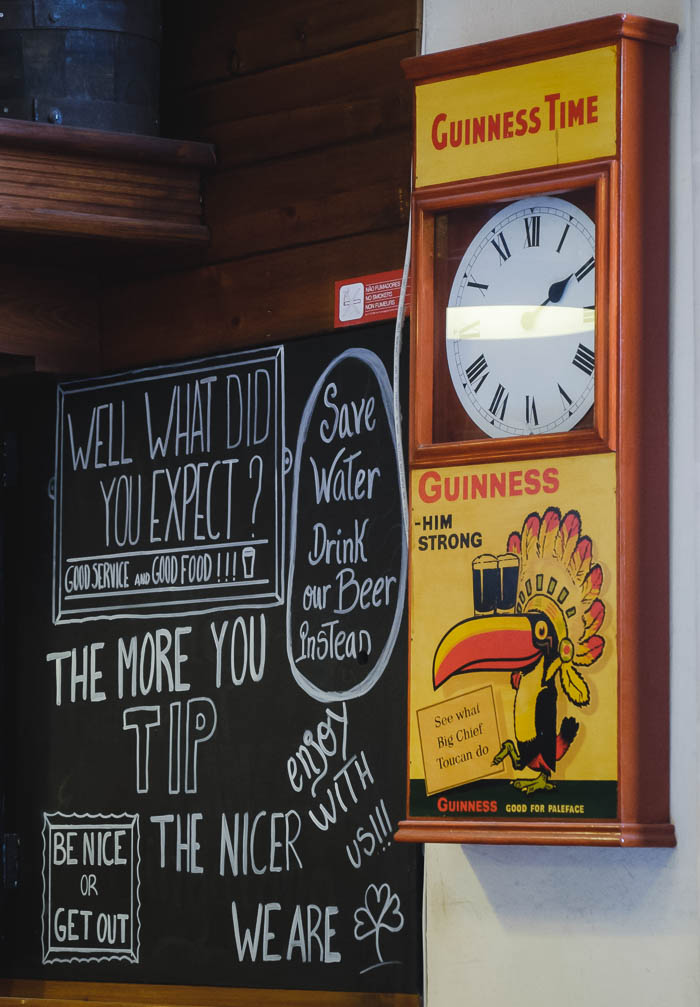 GUINNESS TIME
XII
I
II
IIII
V
VI
VII
VIII
X
XI
NÃO FUMADORES
NO SMOKERS
NON FUMEURS
WELL WHAT DID
YOU EXPECT?
GOOD SERVICE AND GOOD FOOD!!!
Save
Water
Drink
our Beer
Instead
THE MORE YOU
TIP
THE NICER
WE ARE
enjoy
WITH
US!!!
BE NICE
OR
GET OUT
GUINNESS
-HIM
STRONG
See what
Big Chief
Toucan do
GUINNESS GOOD FOR PALEFACE